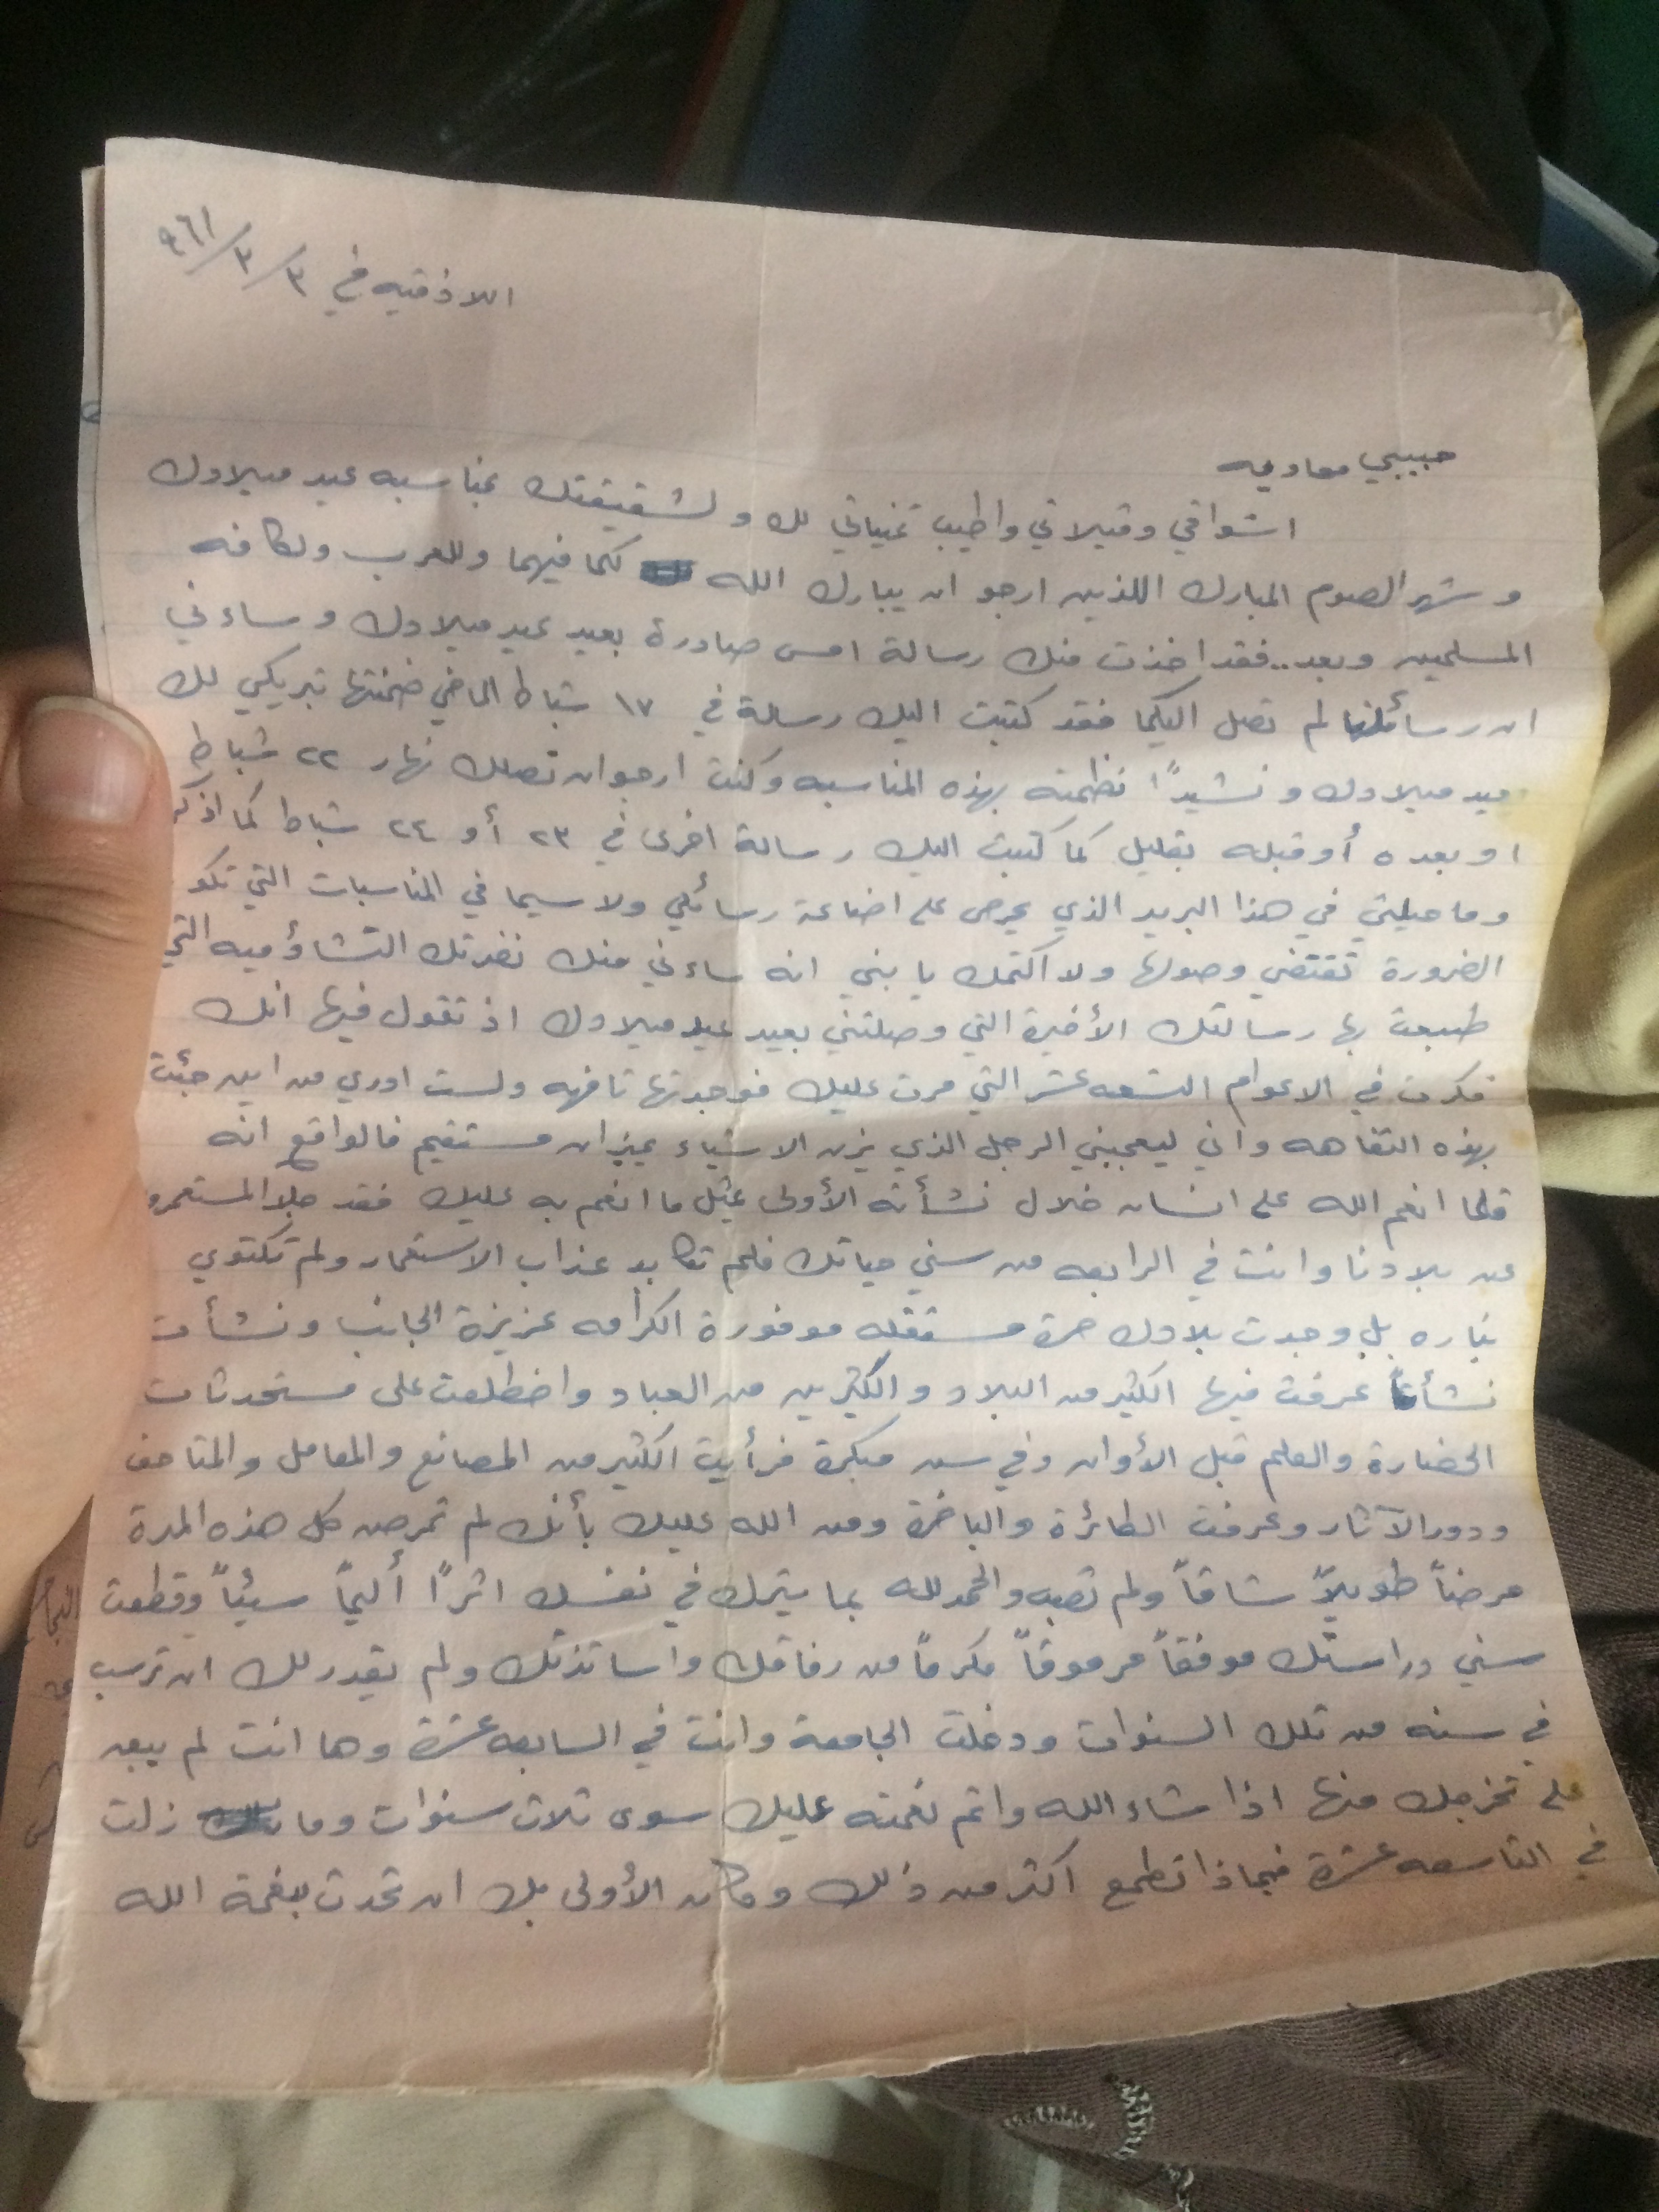 اللاذقيه في ٣/٣/٩٦١
حبيبي معاويه
اشواقي وقبلاتي واطيب تمنياتي لك ولشقيقتك بمناسبه عيد ميلادك
وشهر الصوم المبارك اللذين ارجو ان يبارك الله لكما فيهما وللعرب ولكافه
المسلمين وبعد.. فقد اخذت منك رسالة امس صادرة بعيد عيد ميلادك وساءني
ان رسائلنا لم تصل اليكما فقد كتبت اليك رسالة في ١٧ شباط الماضي ضمنتها تبريكي لك
بعيد ميلادك ونشيداً نظمته بهذه المناسبه وكنت ارجو ان تصلك نهار ٢٢ شباط
او بعده أو قبله بقليل كما كتبت اليك رسالة اخرى في ٢٣ أو ٢٤ شباط كما اذكر
وما حيلتي في هذا البريد الذي يحرص على اضاعة رسائلي ولا سيما في المناسبات التي تكو
الضرورة تقتضي وصولها ولا اكتمك يا بني انه ساءني منك نظرتك التشاؤميه التي
طبعت بها رسالتك الأخيرة التي وصلتني بعيد عيد ميلادك اذ تقول فيها انك
فكرت في الاعوام التسعه عشر التي مرت عليك فوجدتها تافهه ولست ادري من اين جئت
بهذه التفاهه واني ليعجبني الرجل الذي يزن الاشياء بميزان مستقيم فالواقع انه
قلما انعم الله على انسان خلال نشأته الأولى بمثل ما انعم به عليك فقد جلا المستعمرو
عن بلادنا وانت في الرابعه من سني حياتك فلم تكابد عذاب الاستعمار ولم تكتوي
بناره بل وجدت بلادك حرة مستقله موفورة الكرامه عزيزة الجانب ونشأت
نشأة عرفت فيها الكثير من البلاد والكثيرين من العباد واضطلعت على مستحدثات
الحضارة والعلم قبل الأوان وفي سن مبكرة فرأيت الكثير من المصانع والمعامل والمتاحف
ودور الآثار وعرفت الطائرة والباخرة ومن الله عليك بأنك لم تمرض كل هذه المدة
مرضاً طويلاً شاقاً ولم تصب والحمد لله بما يترك في نفسك اثراً أليماً سيئاً وقطعت
سني دراستك موفقاً مرموقاً مكرماً من رفاقك واساتذتك ولم يقدر لك ان ترسب
في سنه من تلك السنوات ودخلت الجامعة وانت في السابعه عشرة وها انت لم يبق
على تخرجك منها اذا شاء الله واتم نعمته عليك سوى ثلاث سنوات وما زلت
في التاسعه عشرة فبماذا تطمع اكثر من ذلك وكان الأولى بك ان تحدث بنعمة الله